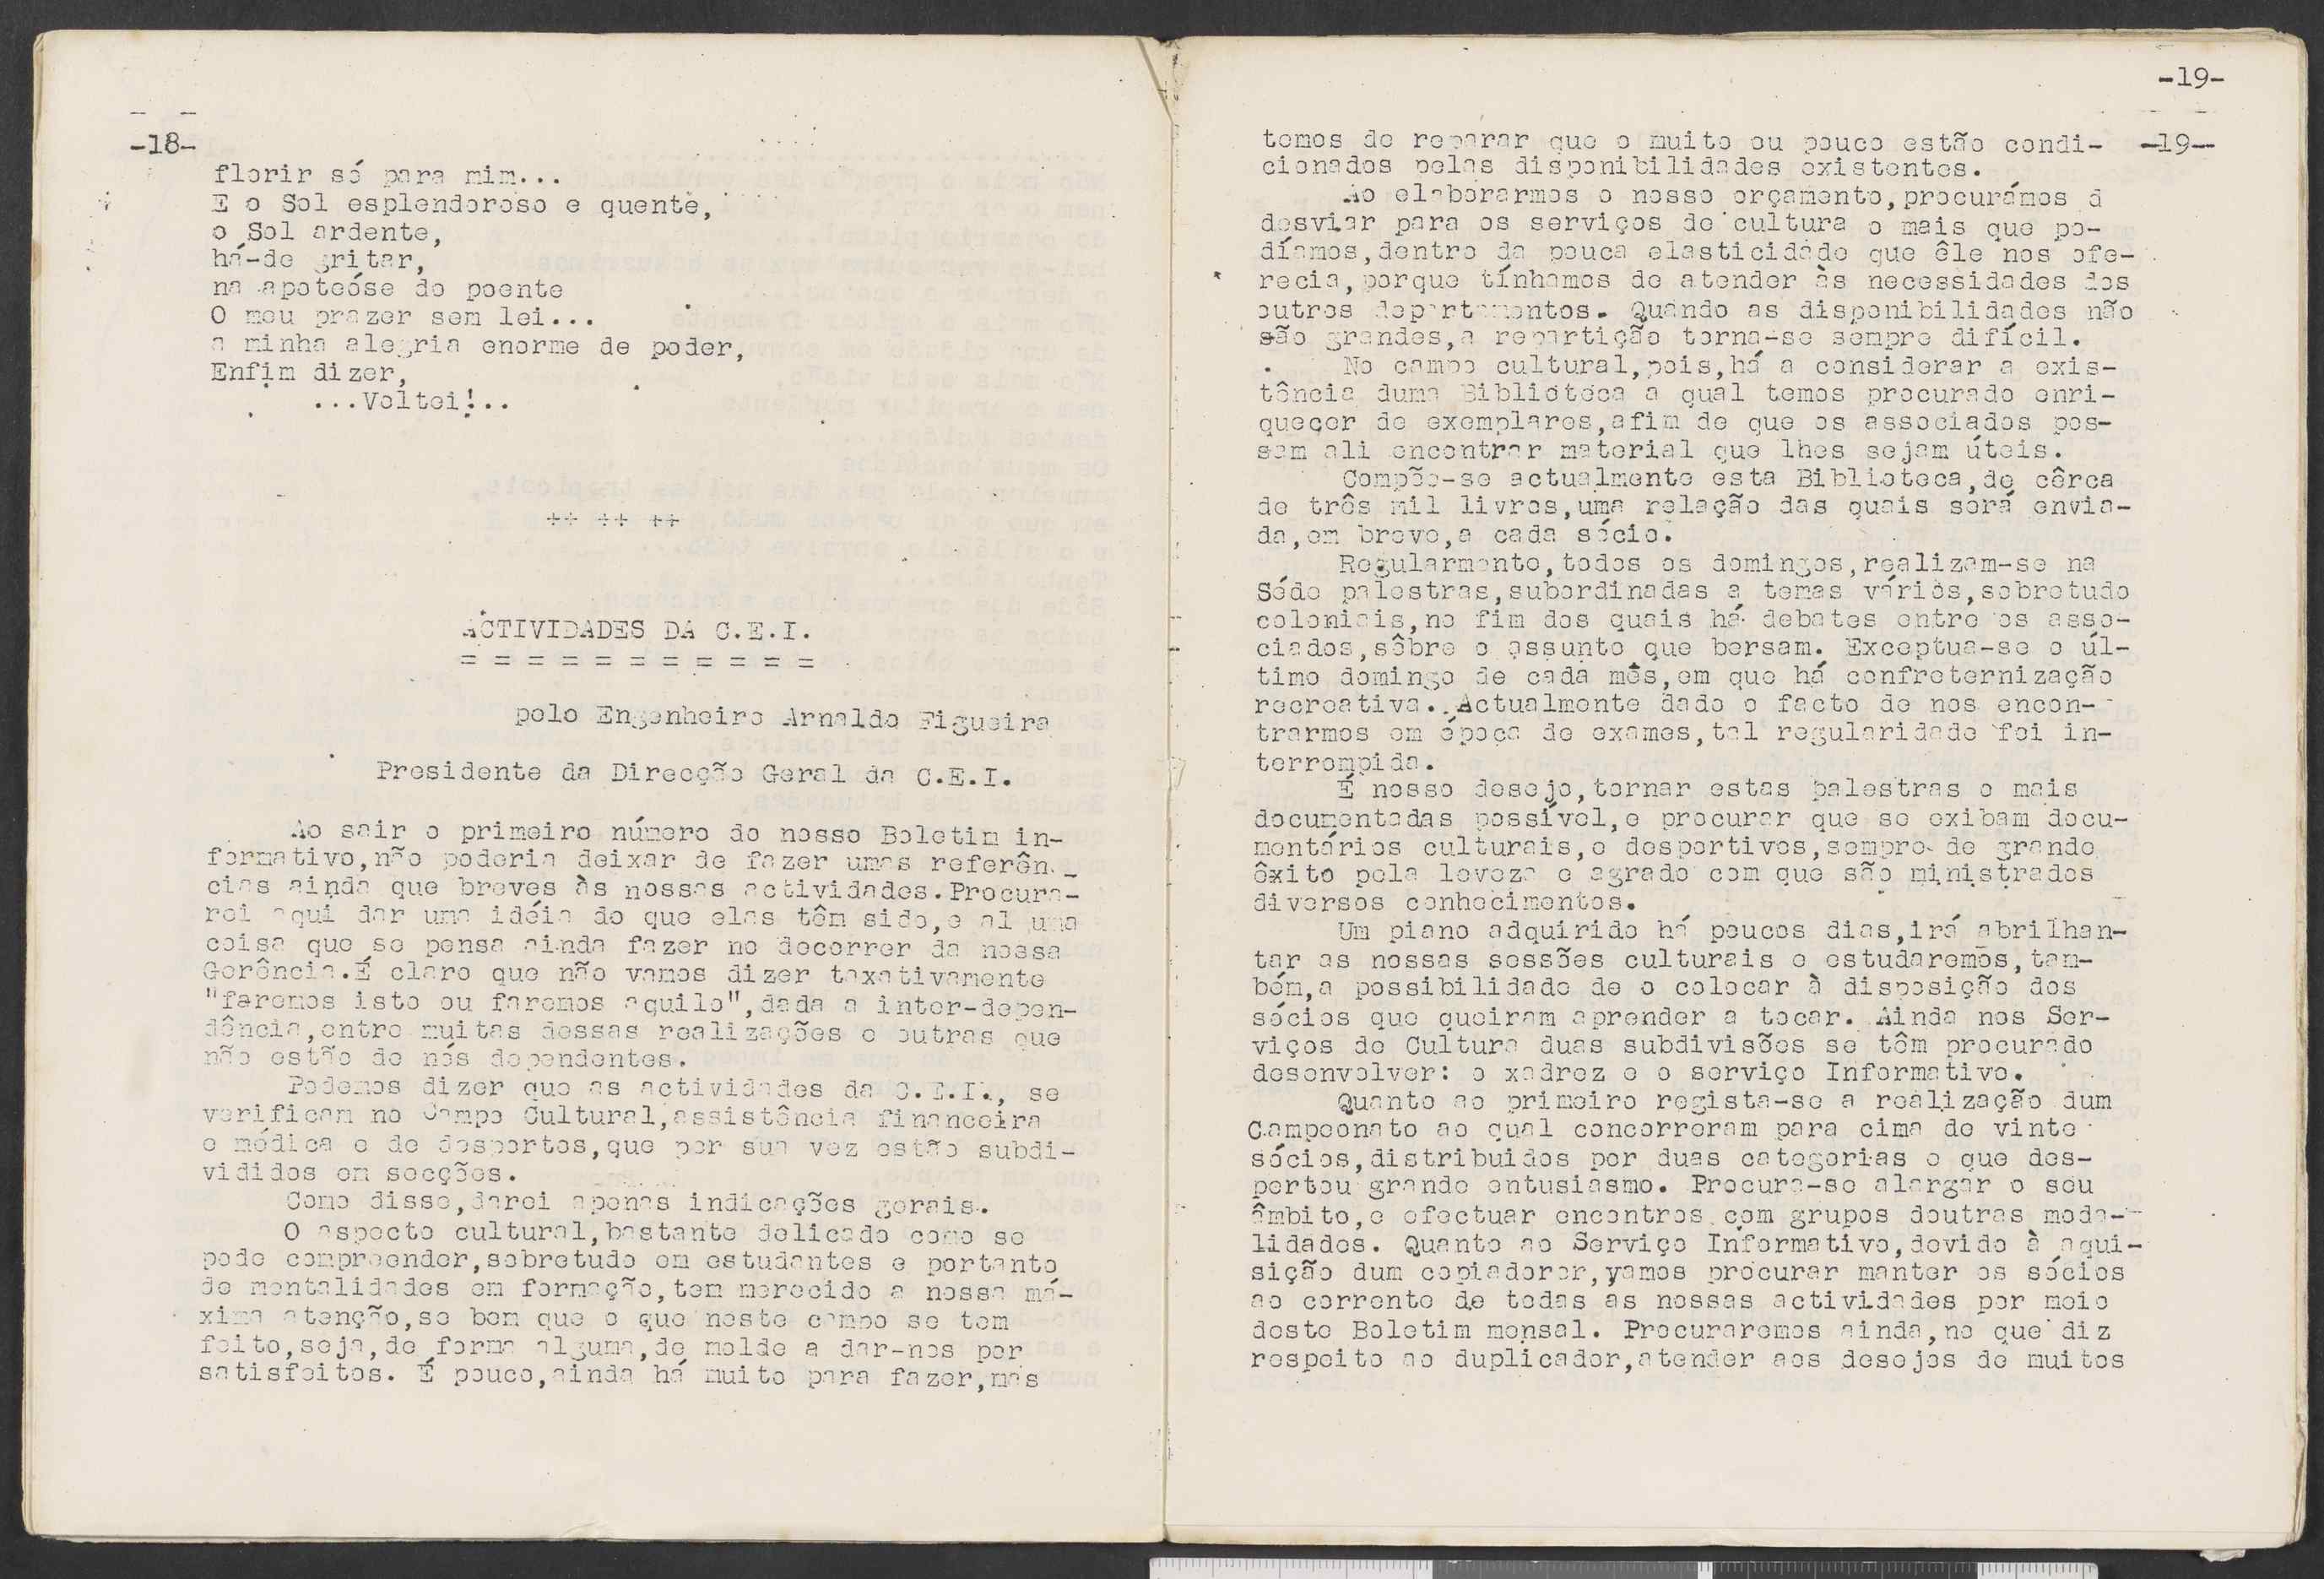 -18-
florir só para mim...
E o Sol esplendoroso e quente,
o Sol ardente,
há-de gritar,
na apoteóse do poente
O meu prazer sem lei...
a minha alegria enorme de poder,
Enfim dizer,
...Voltei!..
++ ++ ++
ACTIVIDADES DA C.E.I.
= = = = = = = = = = =
pelo Engenheiro Arnaldo Figueira
Presidente da Direcção Geral da C.E.I.
Ao sair o primeiro número do nosso Boletim in-
formativo,não poderia deixar de fazer umas referên_
cias ainda que breves às nossas actividades.Procura-
rei aqui dar uma idéia do que elas têm sido,e al uma
coisa que se pensa ainda fazer no decorrer da nossa
Gerência.É claro que não vamos dizer taxativamente
"faremos isto ou faremos aquilo",dada a inter-depen-
dência,entre muitas dessas realizações e outras que
não estão de nós dependentes.
Podemos dizer que as actividades da C.E.I., se
verificam no Campo Cultural,assistência financeira
e médica e de desportos,que por sua vez estão subdi-
vididos em secções.
Como disse,darei apenas indicações gerais.
O aspecto cultural,bastante delicado como se
pode compreender,sobretudo em estudantes e portanto
de mentalidades em formação,tem merecido a nossa má-
xima atenção,se bem que o que neste campo se tem
feito,seja,de forma alguma,de molde a dar-nos por
satisfeitos. É pouco,ainda há muito para fazer,mas
-19-
temos de reparar que o muito ou pouco estão condi- -19-
cionados pelas disponibilidades existentes.
Ao elaborarmos o nosso orçamento,procurámos a
desviar para os serviços de cultura o mais que po-
díamos,dentro da pouca elasticidade que êle nos ofe-
recia,porque tínhamos de atender às necessidades dos
outros departamentos. Quando as disponibilidades não
são grandes,a repartição torna-se sempre difícil.
No campo cultural,pois,há a considerar a exis-
tência duma Biblioteca a qual temos procurado enri-
queçer de exemplares,afim de que os associados pos-
sam ali encontrar material que lhes sejam úteis.
Compõe-se actualmente esta Biblioteca,de cêrca
de três mil livros,uma relação das quais será envia-
da,em breve,a cada sócio.
Regularmente,todos os domingos,realizam-se na
Séde palestras,subordinadas a temas vários,sobretudo
coloniais,no fim dos quais há debates entre os asso-
ciados,sôbre o assunto que bersam. Exceptua-se o úl-
timo domingo de cada mês,em que há confreternização
recreativa. Actualmente dado o facto de nos encon-
trarmos em época de exames,tal regularidade foi in-
terrompida.
É nosso desejo,tornar estas palestras o mais
documentadas possível,e procurar que se exibam docu-
mentários culturais,e desportivos,sempre de grande
êxito pela leveza e agrado com que são ministrados
diversos conhecimentos.
Um piano adquirido há poucos dias,irá abrilhan-
tar as nossas sessões culturais e estudaremos,tam-
bém,a possibilidade de o colocar à disposição dos
sócios que queiram aprender a tocar. Ainda nos Ser-
viços de Cultura duas subdivisões se têm procurado
desenvolver: o xadrez e o serviço Informativo.
Quanto ao primeiro regista-se a realização dum
Campeonato ao qual concorreram para cima de vinte
sócios,distribuidos por duas categorias e que des-
pertou grande entusiasmo. Procura-se alargar o seu
âmbito,e efectuar encontros com grupos doutras moda-
lidades. Quanto ao Serviço Informativo,devido à aqui-
sição dum copiadoror,vamos procurar manter os sócios
ao corrente de todas as nossas actividades por meio
deste Boletim mensal. Procuraremos ainda,no que diz
respeito ao duplicador,atender aos desejos de muitos